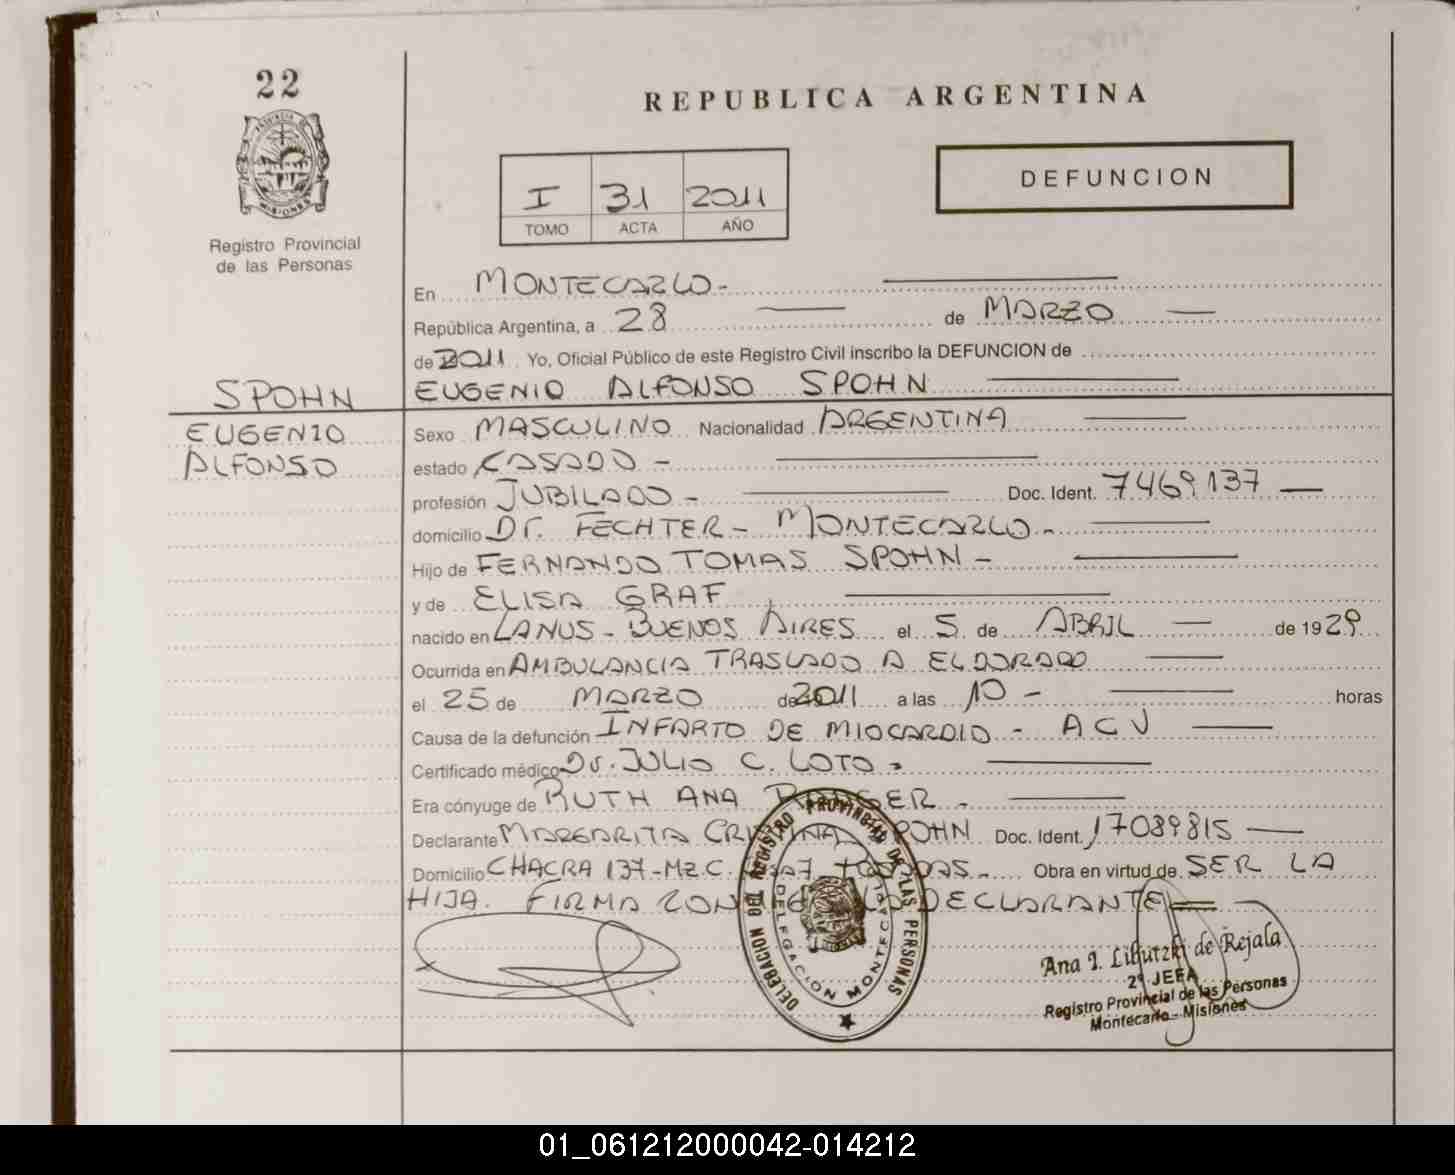 22
PROVINCIA DE
MISIONES
Registro Provincial
de las Personas
REPUBLICA ARGENTINA
I 31 2011
TOMO ACTA AÑO
DEFUNCION
En MONTECARLO-
República Argentina, a 28 de MARZO
de 2011. Yo, Oficial Público de este Registro Civil inscribo la DEFUNCION de
SPOHN EUGENIO ALFONSO SPOHN
EUGENIO Sexo MASCULINO Nacionalidad ARGENTINA
ALFONSO estado CASADO -
profesión JUBILADO - Doc. Ident. 7469137
domicilio Dr. FECHTER - MONTECARLO -
Hijo de FERNANDO TOMAS SPOHN -
y de ELISA GRAF
nacido en LANUS - BUENOS AIRES el 5 de ABRIL de 1929
Ocurrida en AMBULANCIA TRASLADO A ELDORADO
el 25 de MARZO de 2011 a las 10 - horas
Causa de la defunción INFARTO DE MIOCARDIO - ACV
Certificado médico Dr. JULIO C. LOTO -
Era cónyuge de RUTH ANA -
Declarante MARGARITA CRISTINA SPOHN Doc. Ident. 17039815
Domicilio CHACRA 137-MZ.C. Obra en virtud de SER LA
HIJA. FIRMA DECLARANTE
DELEGACION DEL REGISTRO PROVINCIAL DE LAS PERSONAS
DELEGACION MONTECARLO
Ana I. de Rejala
2º JEFA
Registro Provincial de las Personas
Montecarlo - Misiones
01_061212000042-014212